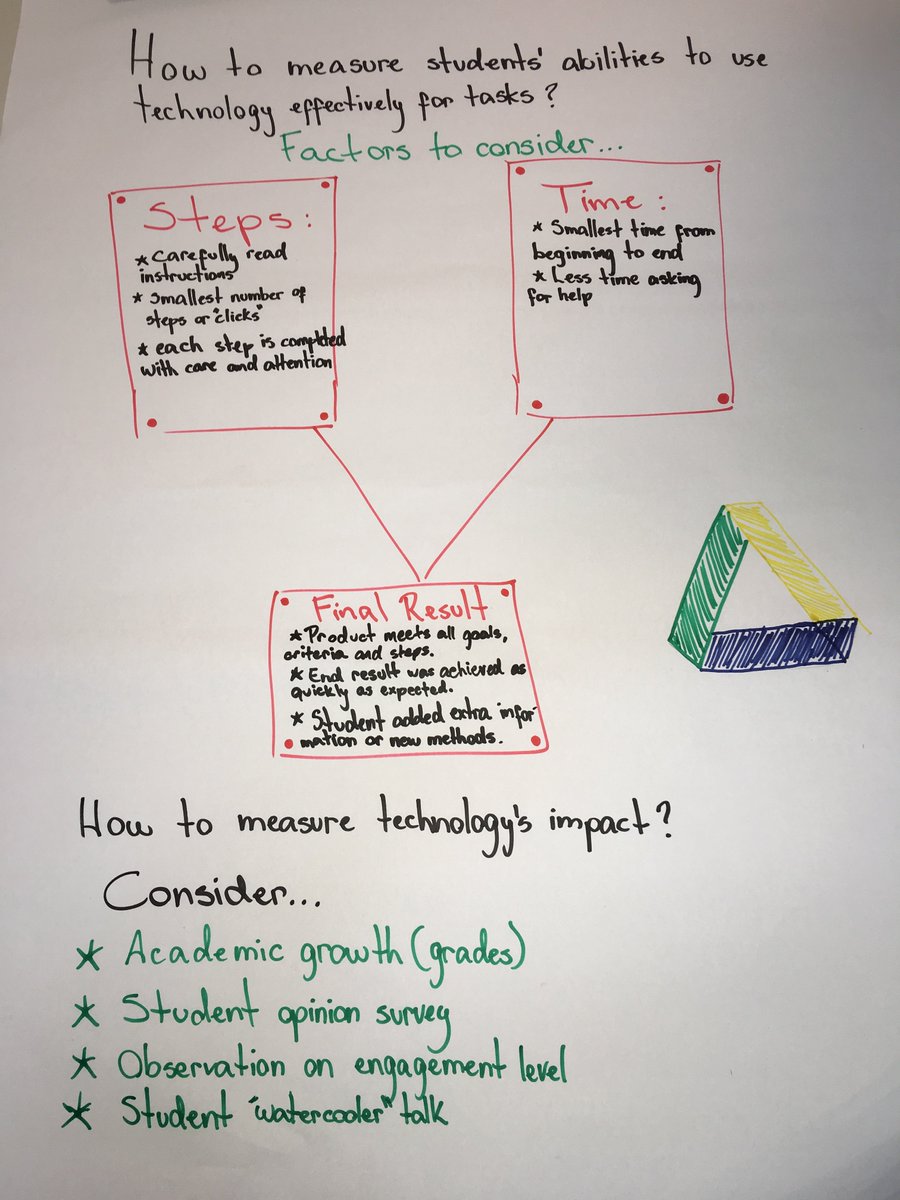 How to measure students' abilities to use
technology effectively for tasks?
Factors to consider...
Steps:
* Carefully read
instructions
* Smallest number of
steps or "clicks"
* each step is completed
with care and attention
Time:
* Smallest time from
beginning to end
* Less time asking
for help
Final Result
* Product meets all goals,
criteria and steps.
* End result was achieved as
quickly as expected.
* Student added extra infor
mation or new methods.
How to measure technology's impact?
Consider...
* Academic growth (grades)
* Student opinion survey
* Observation on engagement level
* Student "watercooler" talk